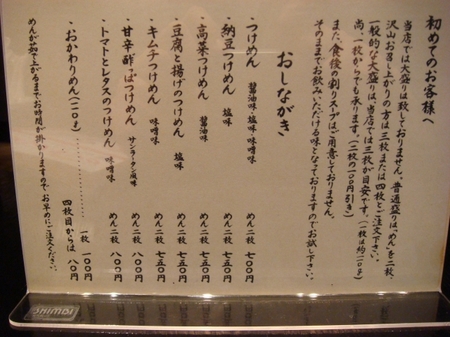 初めてのお客様へ
当店では大盛りは致しておりません。普通盛りは、めんを二枚、
沢山お召し上がりの方は三枚または四枚とご注文下さい。
一般的な大盛りは、当店では三枚が目安です。(一枚は約一二〇g)
尚、一枚からでも承ります。(二枚の一〇〇円引き)
また、食後の割りスープはご用意しておりません。
そのままでお飲みいただける味となっておりますのでお試し下さい。
おしながき
・つけめん 醤油味、塩味、味噌味 めん二枚 七〇〇円
・納豆つけめん 塩味 めん二枚 七五〇円
・高菜つけめん 醤油味 めん二枚 七五〇円
・豆腐と揚げのつけめん 塩味 めん二枚 七五〇円
・キムチつけめん 味噌味 めん二枚 七五〇円
・甘辛酢っぱつけめん サンラータン風味 めん二枚 八〇〇円
・トマトとレタスのつけめん 味噌味 めん二枚 八〇〇円
・おかわりめん(一二〇g)‥‥‥‥‥‥ 一枚 一〇〇円
四枚目からは 八〇円
めんが茹で上がるまでお時間が掛かりますので お早めにご注文ください。
SHIMBI